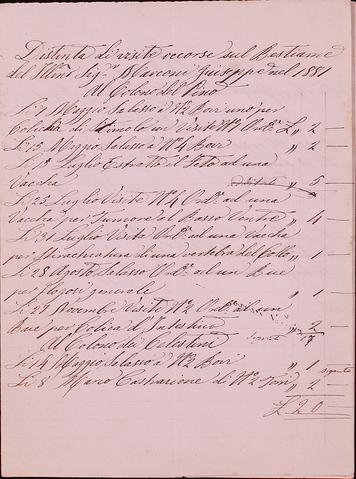 Distinta di visite occorse sul Bestiame
del Illmo Sigr Marconi Giuseppe nel 1881
Al Colono del Pino
Li 1 Maggio Salasso a N2 Bovi uno per
Colica di Stimolo un Visite N1 Ord. L 2 —
Li 15 Maggio Salasso a N4 Bovi " 2 —
Li 19 Luglio Estratto il Feto ad una
Vaccha " 5 —
Li 23 Luglio Visite N4 Ord. ad una
Vaccha per Tumore al Basso Ventre " 4 —
Li 31 Luglio Visita Ord. ad una Vaccha
per stirachiatura di una vertebra del Collo " 1 —
Li 28 Agosto Salasso Ord. ad un Bue
per flogosi generale " 1 —
Li 27 Novembre Visite N2 Ord. al
Bue per Colica d'Intestini " 2 —
17
Al Colono dei Celestini
Li 14 Maggio Salasso a N2 Bovi " 1
Li 8 Marzo Castrazione di N2 Tori " 2 —
L. 20 —